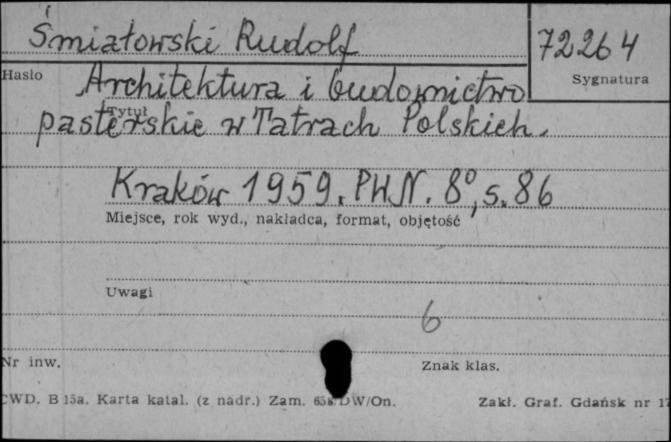 Śmiałowski Rudolf
72264
Hasło
Sygnatura
Architektura i budownictwo
Tytuł
pasterskie w Tatrach Polskich.
Kraków 1959. PWN. 8°, s. 86
Miejsce, rok wyd., nakładca, format, objętość
Uwagi
6
Nr inw.
Znak klas.
CWD. B 15a. Karta katal. (z nadr.) Zam. DW/On.
Zakł. Graf. Gdańsk nr